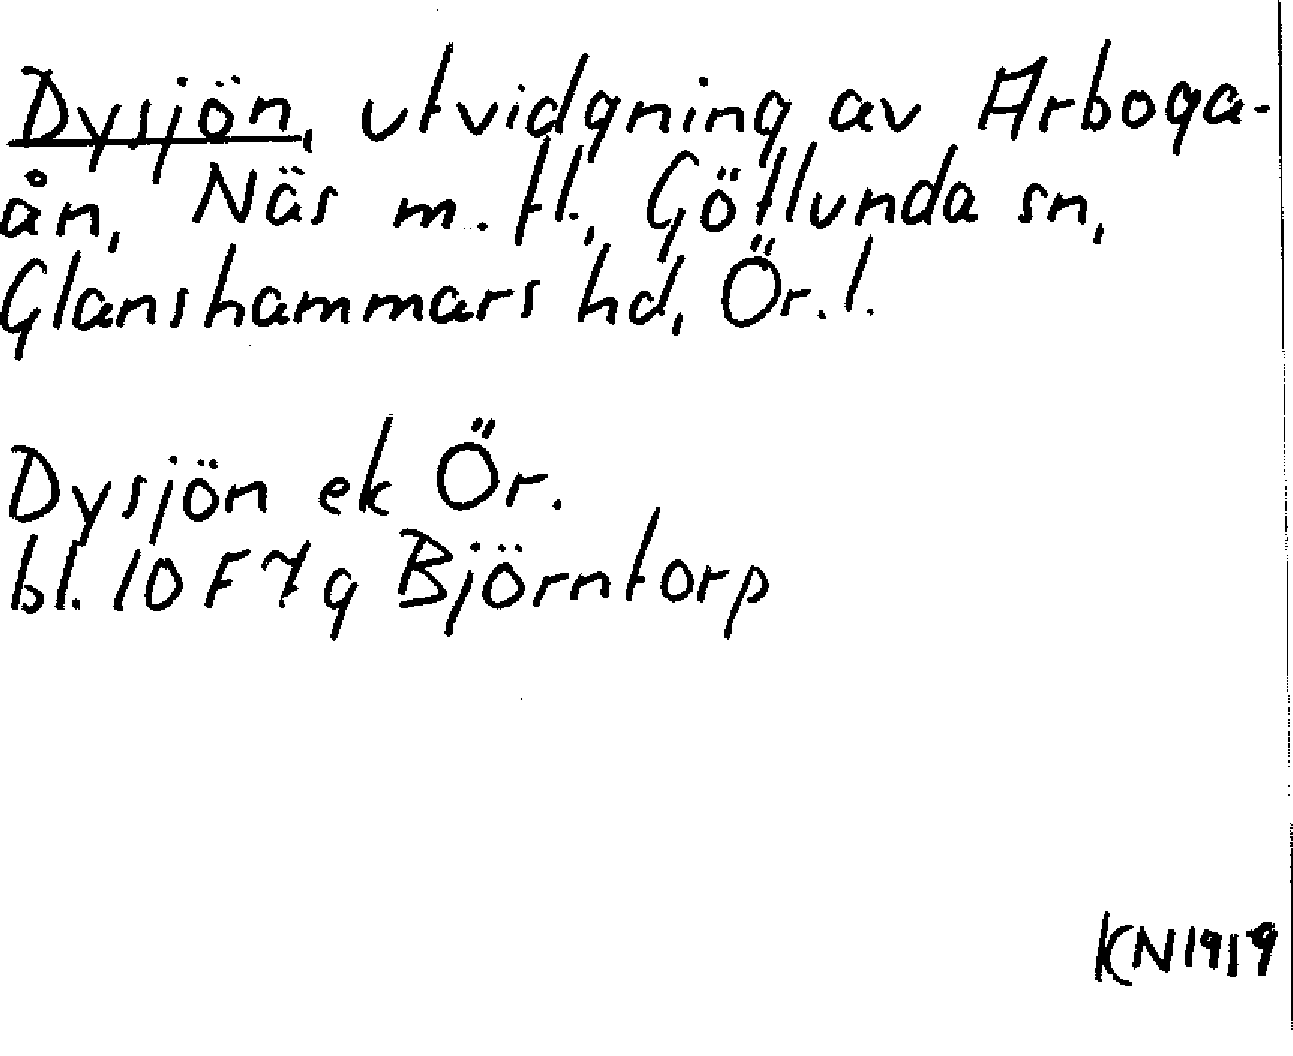 Dysjön, utvidgning av Arboga-
ån, Näs m. fl., Götlunda sn,
Glanshammars hd, Ör. l.
Dysjön ek Ör.
bl. 10 F 7 g Björntorp
KN 1919